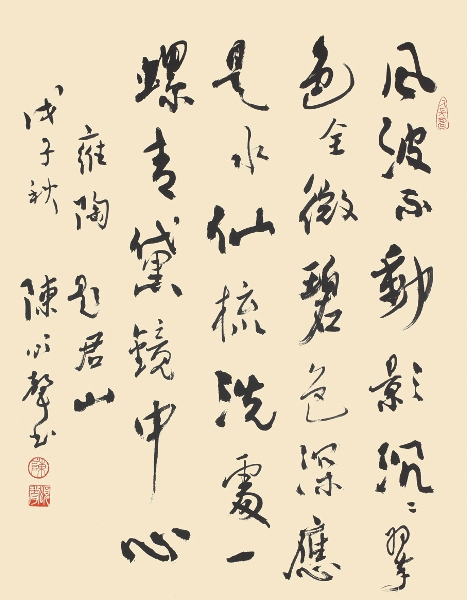 風波不動影沉〻翠
色全微碧色深應
是水仙梳洗處一
螺青黛鏡中心
雍陶 題君山
戊子秋 陳書